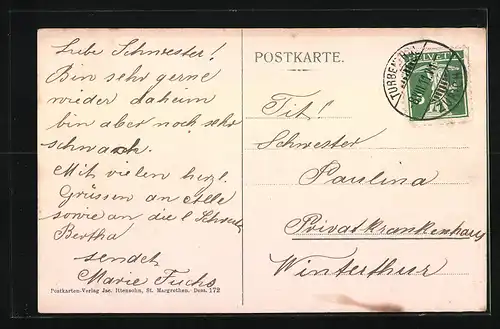 Liebe Schwester!
Bin sehr gerne
wieder daheim
bin aber noch sehr
schwach.
Mit vielen herzl.
Grüssen an Alle
sowie an die l Schwester
Bertha
sendet
Marie Fuchs
Postkarten-Verlag Jac. Ittensohn, St. Margrethen. Dess. 172
POSTKARTE.
HELVETIA
TURBENTHAL
Tit!
Schwester
Paulina
Privatkrankenhaus
Winterthur